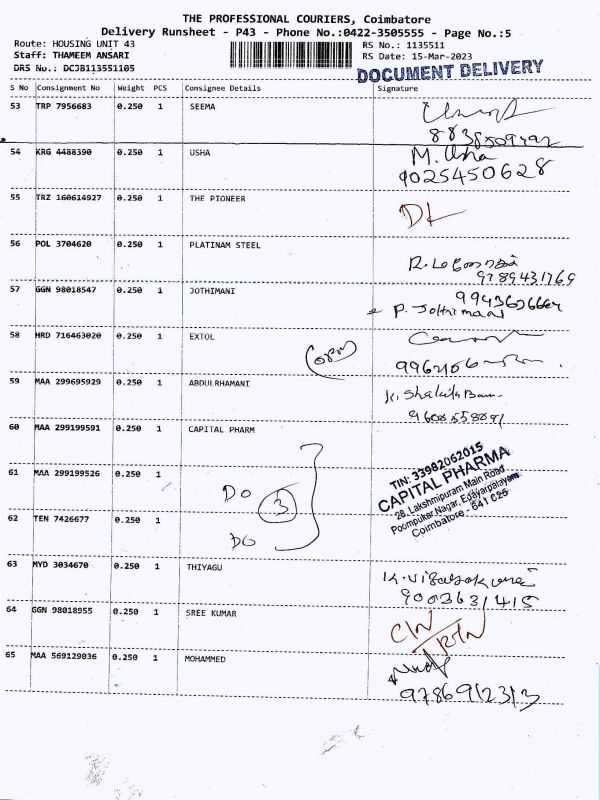 THE PROFESSIONAL COURIERS, Coimbatore
Delivery Runsheet - P43 - Phone No.:0422-3505555 - Page No.:5
Route: HOUSING UNIT 43 RS No.: 1135511
Staff: THAMEEM ANSARI RS Date: 15-Mar-2023
DRS No.: DCJB113551105 DOCUMENT DELIVERY
S No Consignment No Weight PCS Consignee Details Signature
53 TRP 7956683 0.250 1 SEEMA
54 KRG 4488390 0.250 1 USHA M. Usha
9025450628
55 TRZ 160614927 0.250 1 THE PIONEER DL
56 POL 3704620 0.250 1 PLATINAM STEEL
9789431769
57 GGN 98018547 0.250 1 JOTHIMANI
P. Jothimani
58 HRD 716463020 0.250 1 EXTOL
59 MAA 299695929 0.250 1 ABDULRHAMANI
60 MAA 299199591 0.250 1 CAPITAL PHARM
61 MAA 299199526 0.250 1 DO 3
62 TEN 7426677 0.250 1 DO
TIN: 33982062015
CAPITAL PHARMA
28, Lakshmipuram Main Road
Poompukar Nagar, Edayarpalayam
Coimbatore - 641 025
63 MYD 3034670 0.250 1 THIYAGU
9003631415
64 GGN 98018955 0.250 1 SREE KUMAR C/N
RTN
65 MAA 569129036 0.250 1 MOHAMMED
9786912313